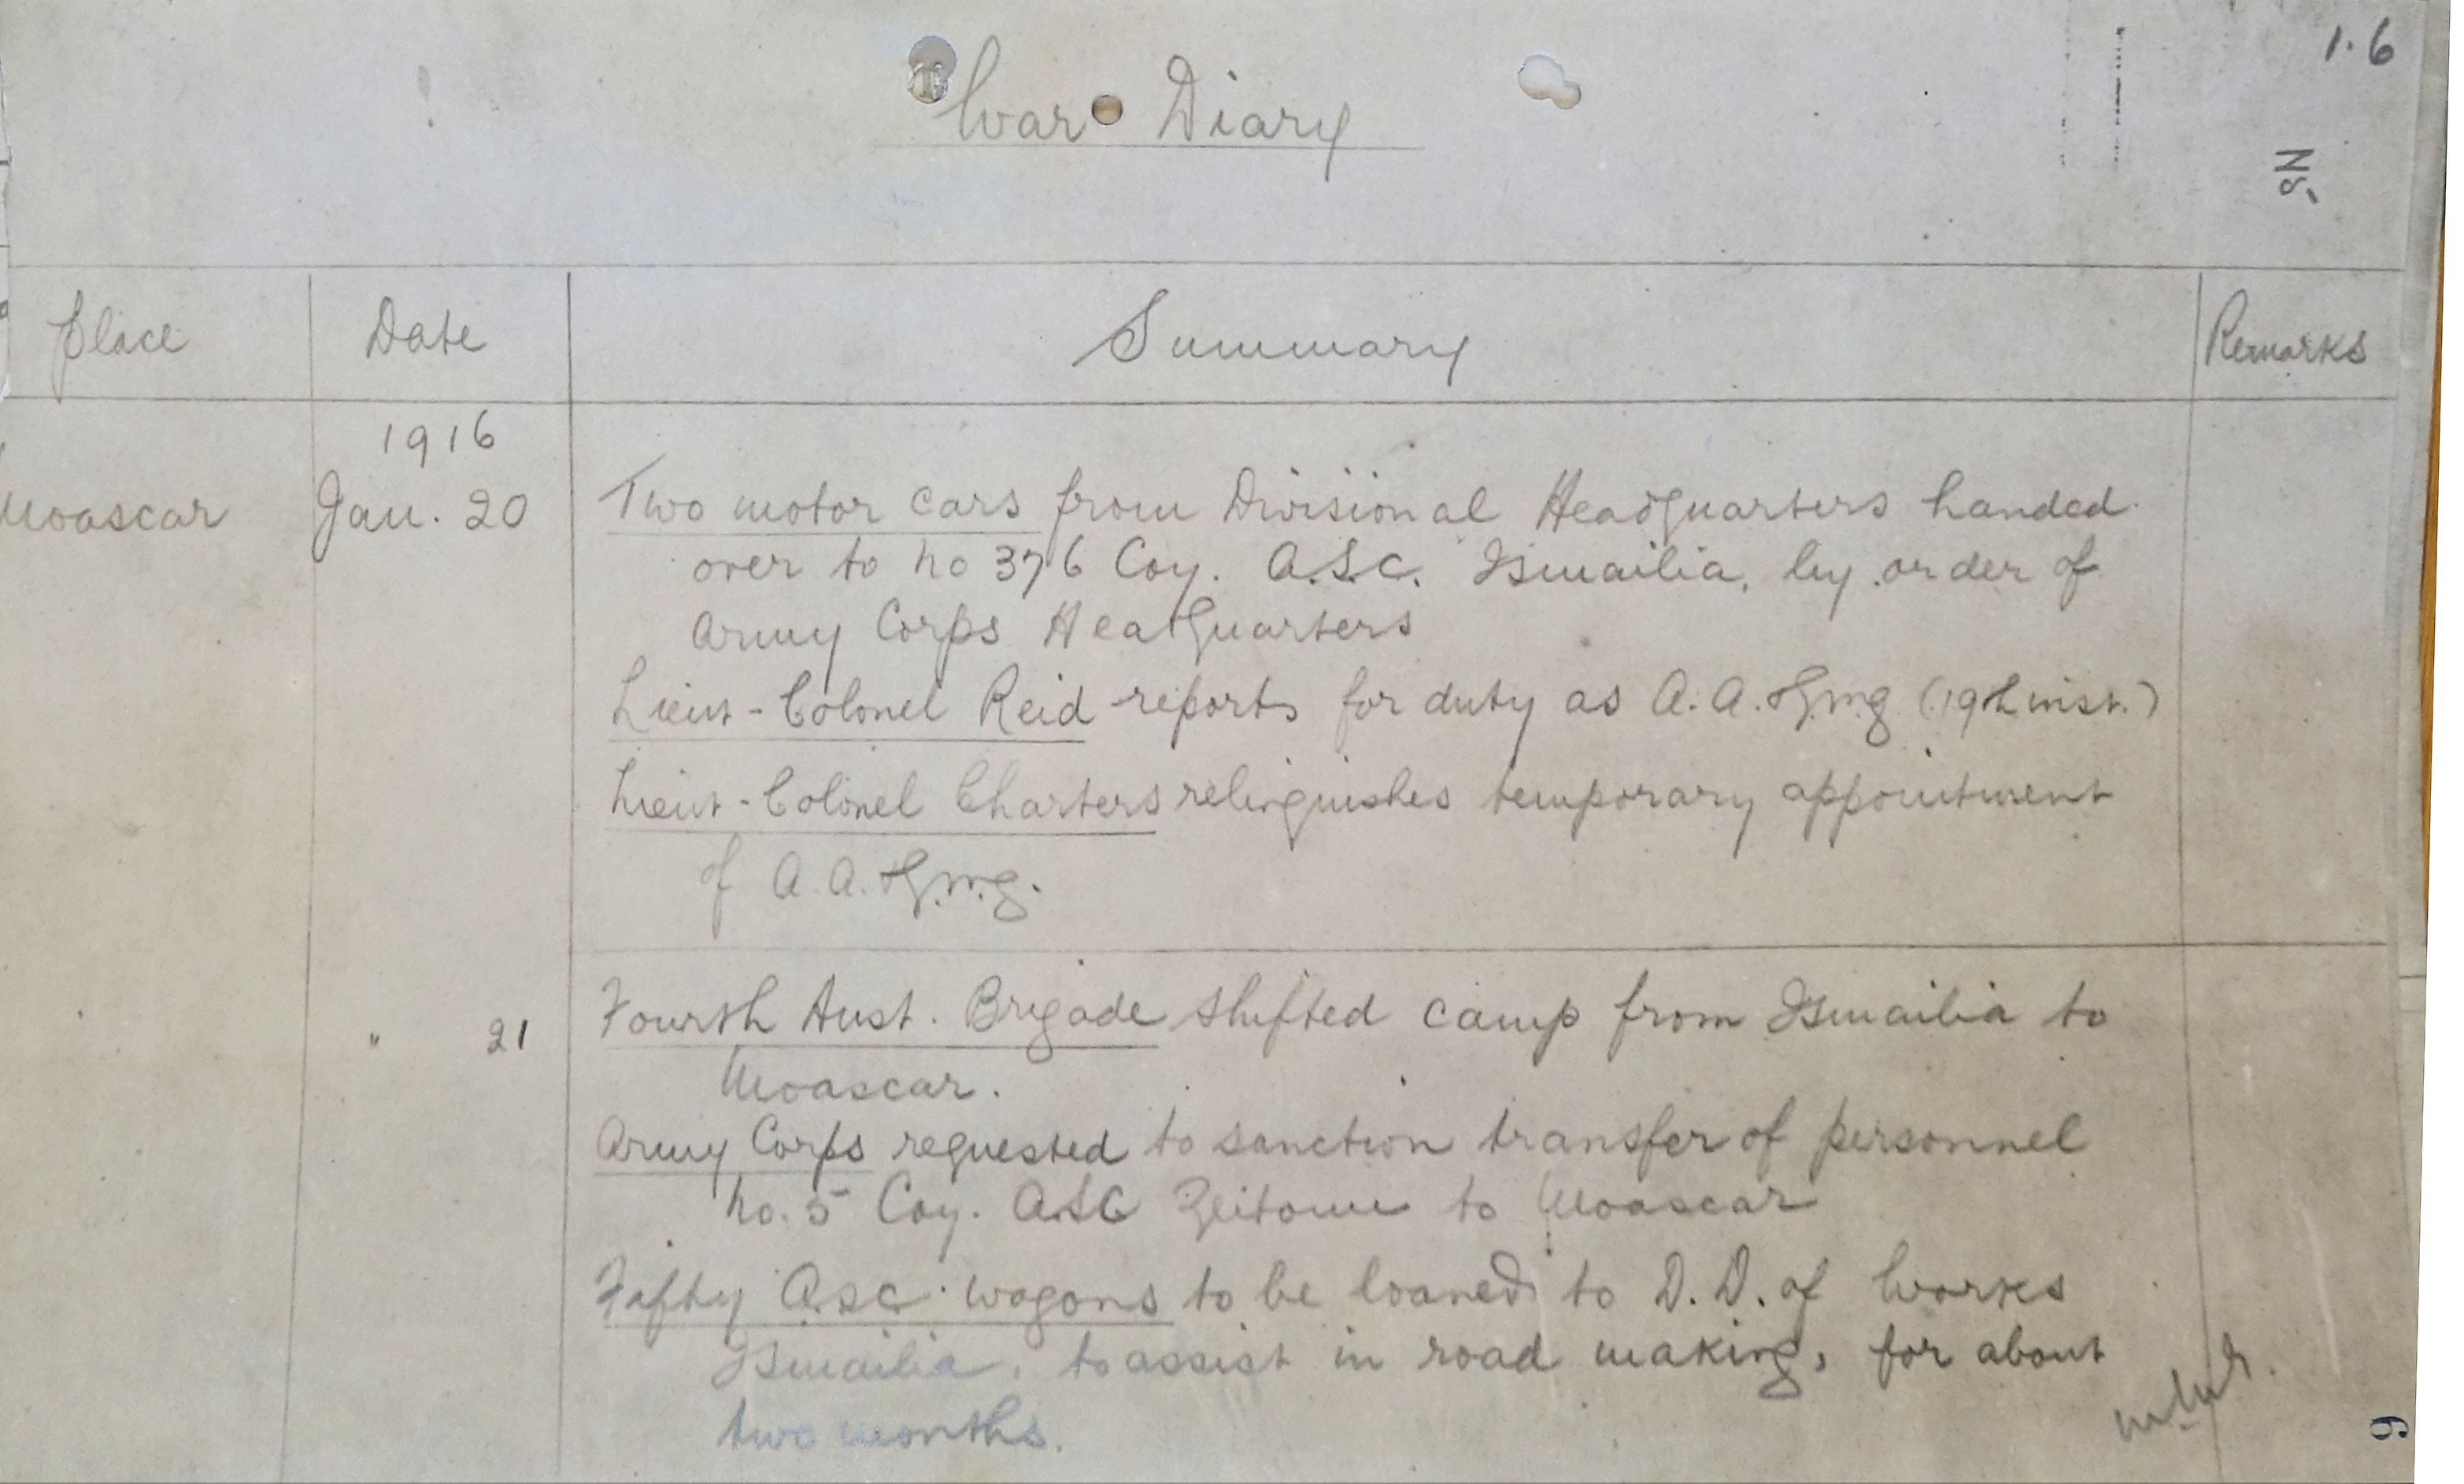 1.6
War Diary
Place Date Summary Remarks
1916
Moascar Jan. 20 Two motor cars from Divisional Headquarters handed
over to no 376 Coy. A.S.C. Ismailia, by order of
Army Corps Headquarters
Lieut-Colonel Reid reports for duty as A.A.Q.M.G (19th inst.)
Lieut-Colonel Charters relinquishes temporary appointment
of A.A.Q.M.G.
" 21 Fourth Aust. Brigade shifted camp from Ismailia to
Moascar.
Army Corps requested to sanction transfer of personnel
No. 5 Coy. ASC Zeitoun to Moascar
Fifty A.S.C. wagons to be loaned to D.D. of Works
Ismailia, to assist in road making, for about
two months.
6